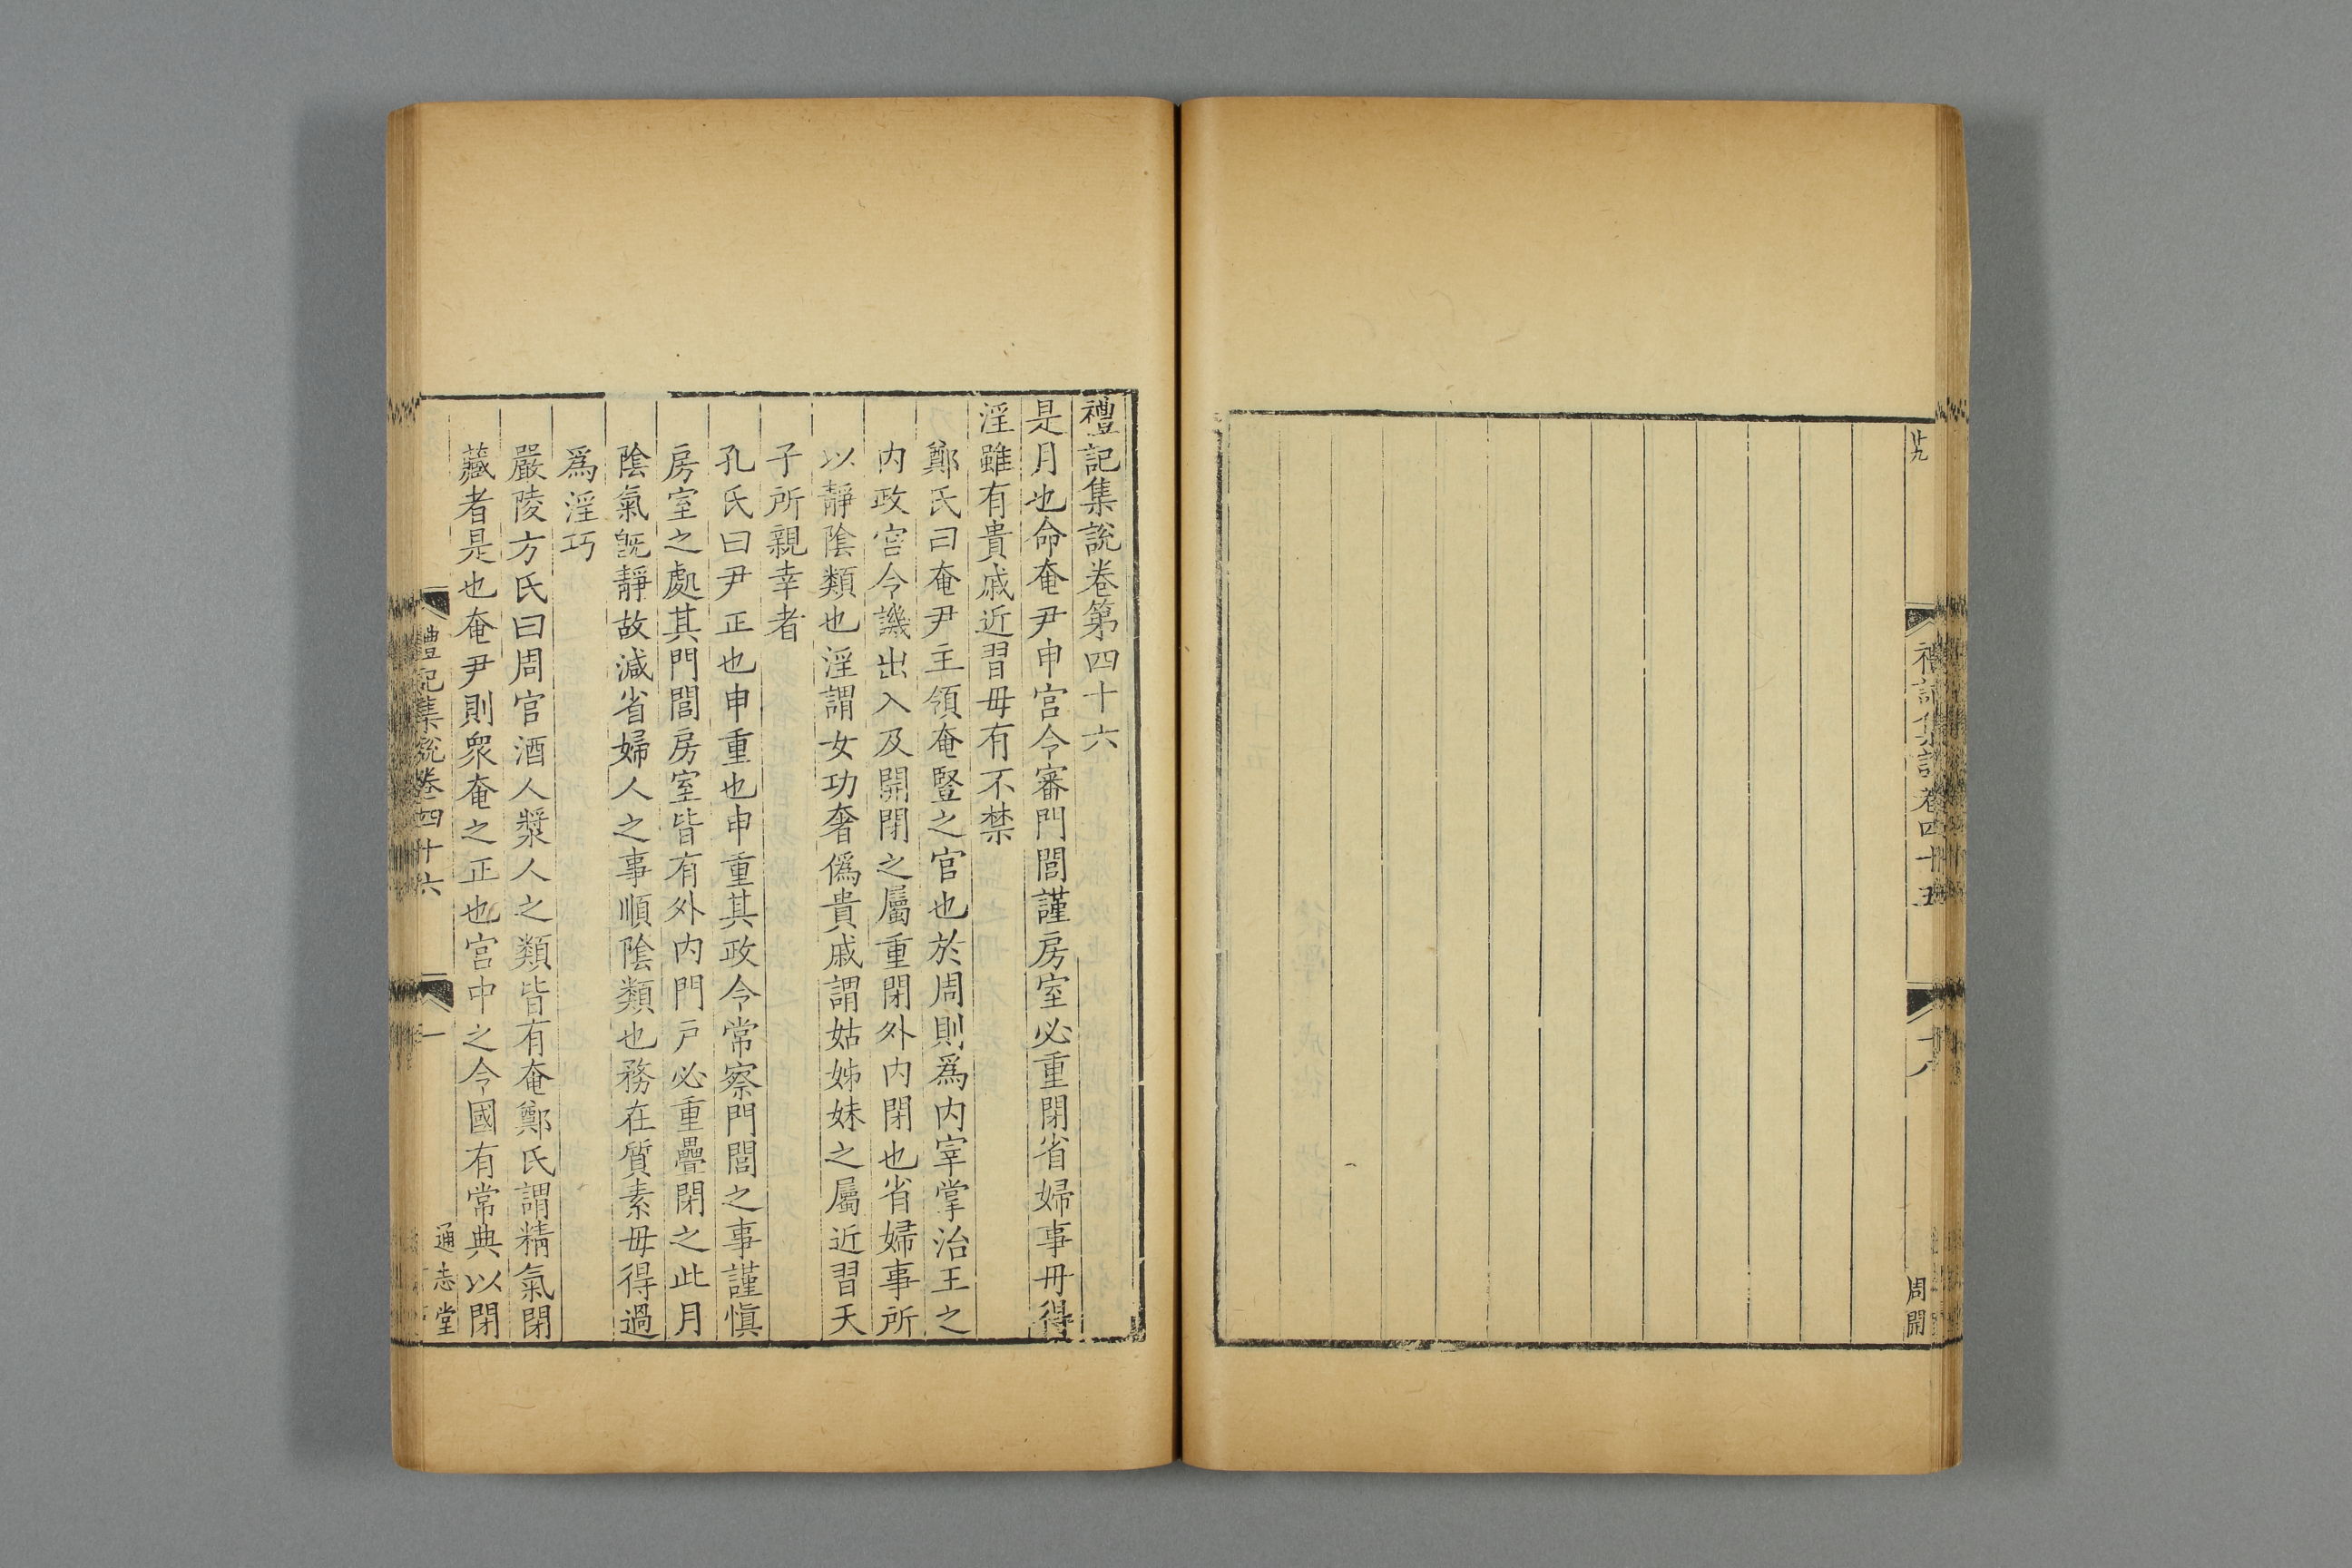 廿九
禮記集說卷四十五
十八
周開
禮記集說卷第四十六
是月也命奄尹申宮令審門閭謹房室必重閉省婦事毋得
淫雖有貴戚近習毋有不禁
鄭氏曰奄尹主領奄豎之官也於周則爲内宰掌治王之
内政宮令譏出入及開閉之屬重閉外内閉也省婦事所
以靜陰類也淫謂女功奢僞貴戚謂姑姊妹之屬近習天
子所親幸者
孔氏曰尹正也申重也申重其政令常察門閭之事謹愼
房室之處其門閭房室皆有外内門戸必重疊閉之此月
陰氣旣靜故減省婦人之事順陰類也務在質素毋得過
爲淫巧
嚴陵方氏曰周官酒人漿人之類皆有奄鄭氏謂精氣閉
藏者是也奄尹則衆奄之正也宮中之令國有常典以閉
禮記集說卷四十六
一
通志堂